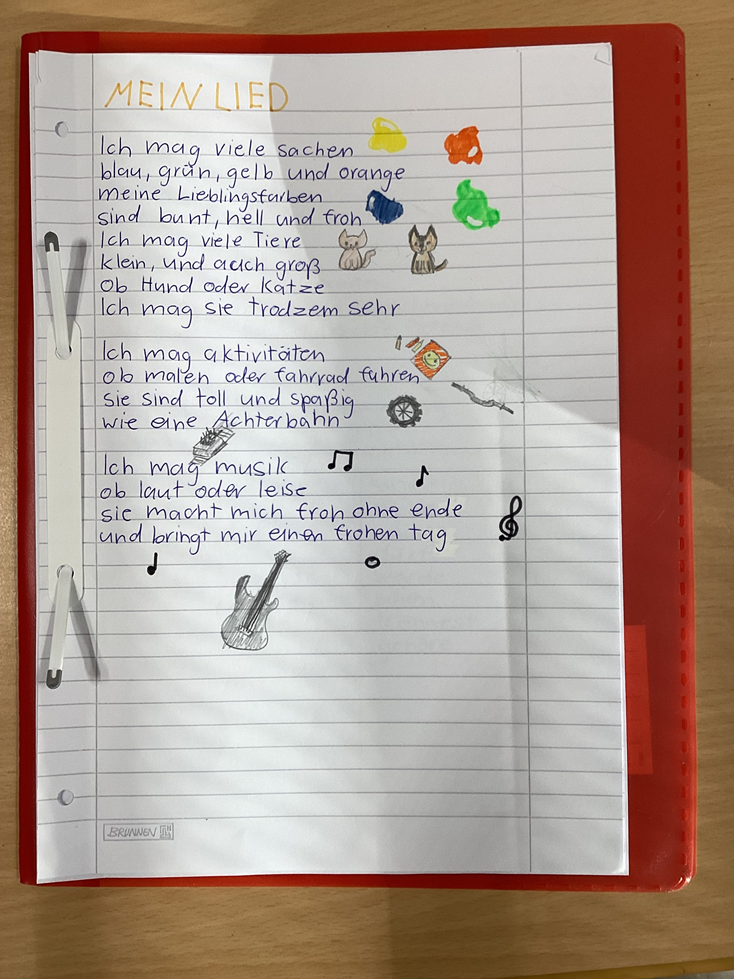 MEIN LIED
Ich mag viele sachen
blau, grün, gelb und orange
meine Lieblingsfarben
sind bunt, hell und froh
Ich mag viele Tiere
klein, und auch groß
ob Hund oder Katze
Ich mag sie trodzem sehr
Ich mag aktivitäten
ob malen oder fahrrad fahren
sie sind toll und spaßig
wie eine Achterbahn
Ich mag musik
ob laut oder leise
sie macht mich froh ohne ende
und bringt mir einen frohen tag
BRUNNEN